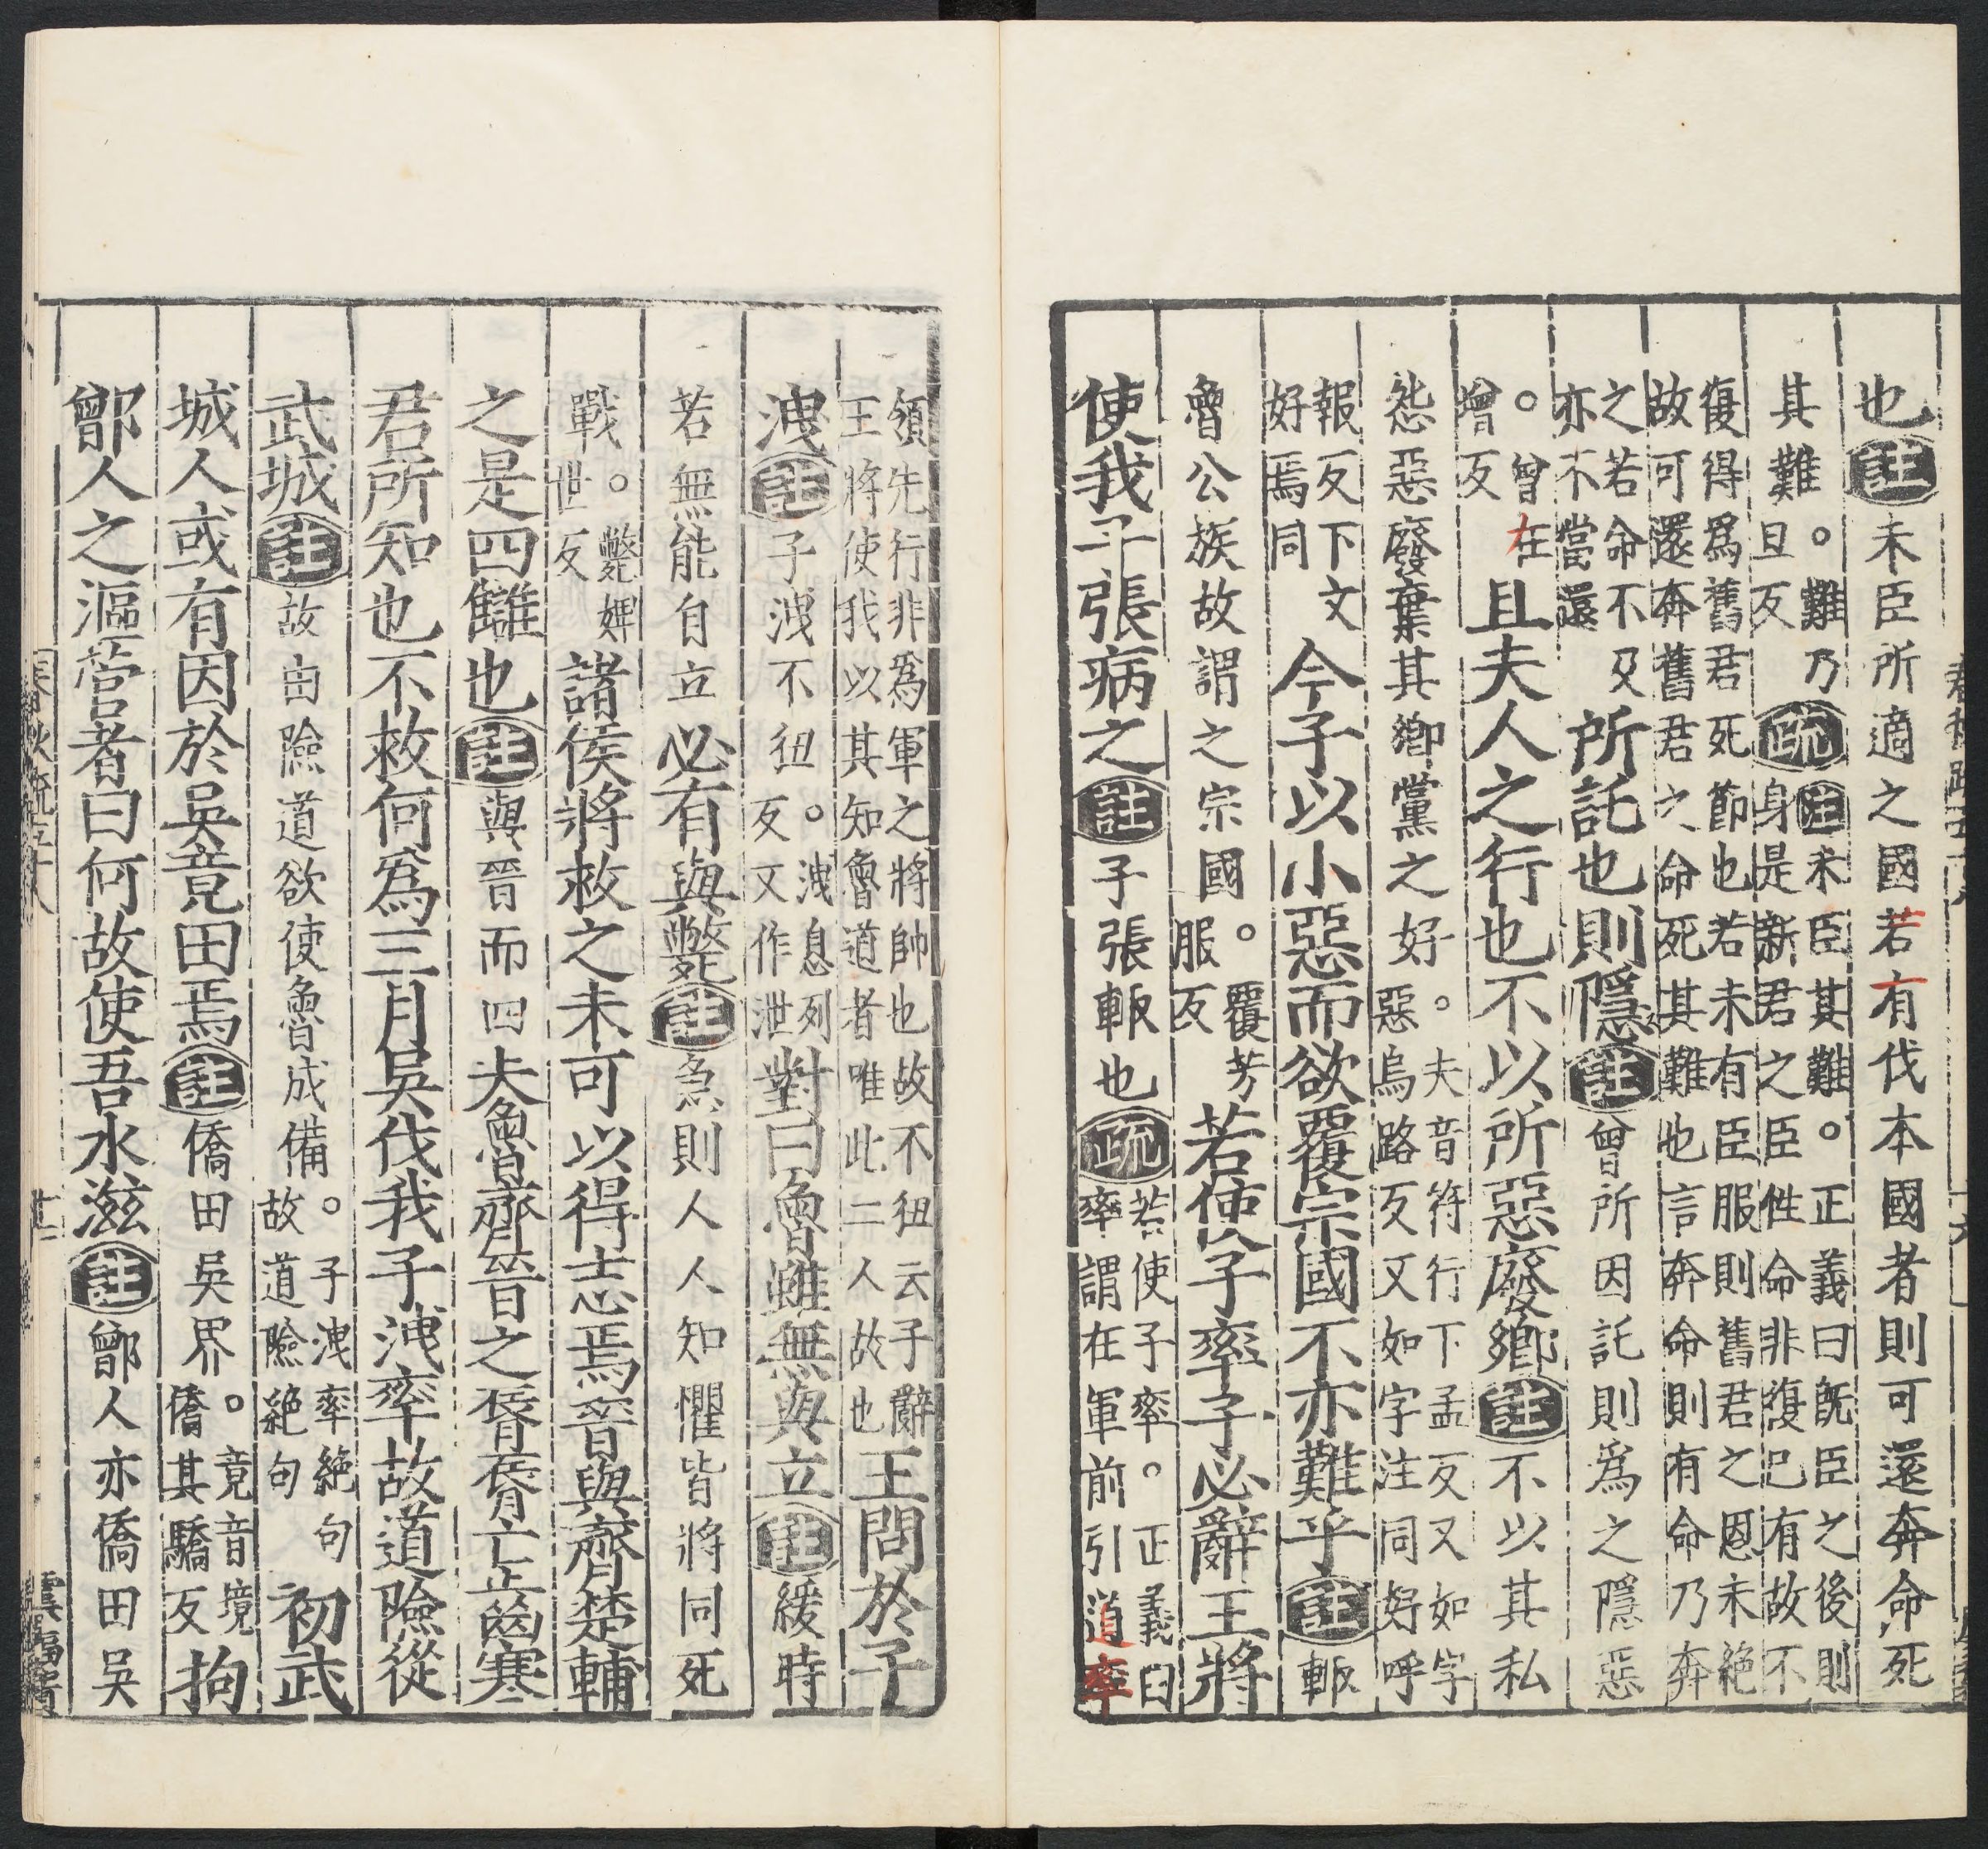 也註未臣所適之國若有伐本國者則可還奔命死
其難。難乃
旦反疏注未臣其難。正義曰既臣之後則
身是新君之臣性命非復已有故不
復得為舊君死節也若未有臣服則舊君之恩未絕
故可還奔舊君之命死其難也言奔命則有命乃奔
之若命不
亦不當還所託也則隱註曾所因託則為之隱惡
。曾在
增反且夫人之行也不以所惡廢鄉註不以其私
怨惡廢棄其鄉黨之好。夫音符行下孟反又如字
惡烏路反又如字注同好呼
報反下文
好焉同今子以小惡而欲覆宗國不亦難乎註輒
魯公族故謂之宗國。覆芳
服反若使子率子必辭王將
使我子張病之註子張輒也疏若使子率。正義曰
率謂在軍前引道率
領先行非為軍之將帥也故不狃云子辭
王將使我以其知魯道者唯此二人故也王問於子
洩註子洩不狃。洩息列
反又作泄對曰魯雖無與立註緩時
若無能自立必有與斃註急則人人知懼皆將同死
戰。斃婢
世反諸侯將救之未可以得志焉晉與齊楚輔
之是四讎也註與晉而四夫魯齊晉之脣脣亡齒寒
君所知也不救何為三月吳伐我子洩率故道險從
武城註故由險道欲使魯成備。子洩率絕句
故道險絕句初武
城人或有因於吳竟田焉註僑田吳界。竟音境
僑其驕反拘
鄫人之漚菅者曰何故使吾水滋註鄫人亦僑田吳